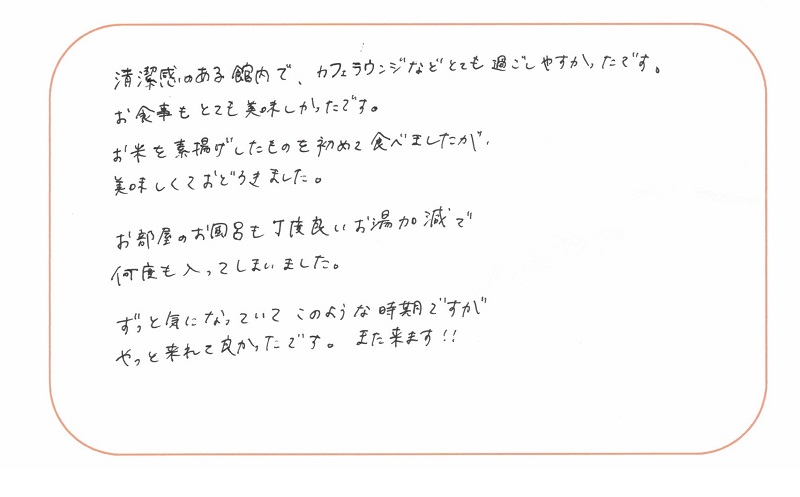 清潔感のある館内で、カフェラウンジなどとても過ごしやすかったです。
お食事もとても美味しかったです。
お米を素揚げしたものを初めて食べましたが、
美味しくておどろきました。
お部屋のお風呂も丁度良いお湯加減で
何度も入ってしまいました。
ずっと気になっていて このような時期ですが
やっと来れて良かったです。また来ます!!